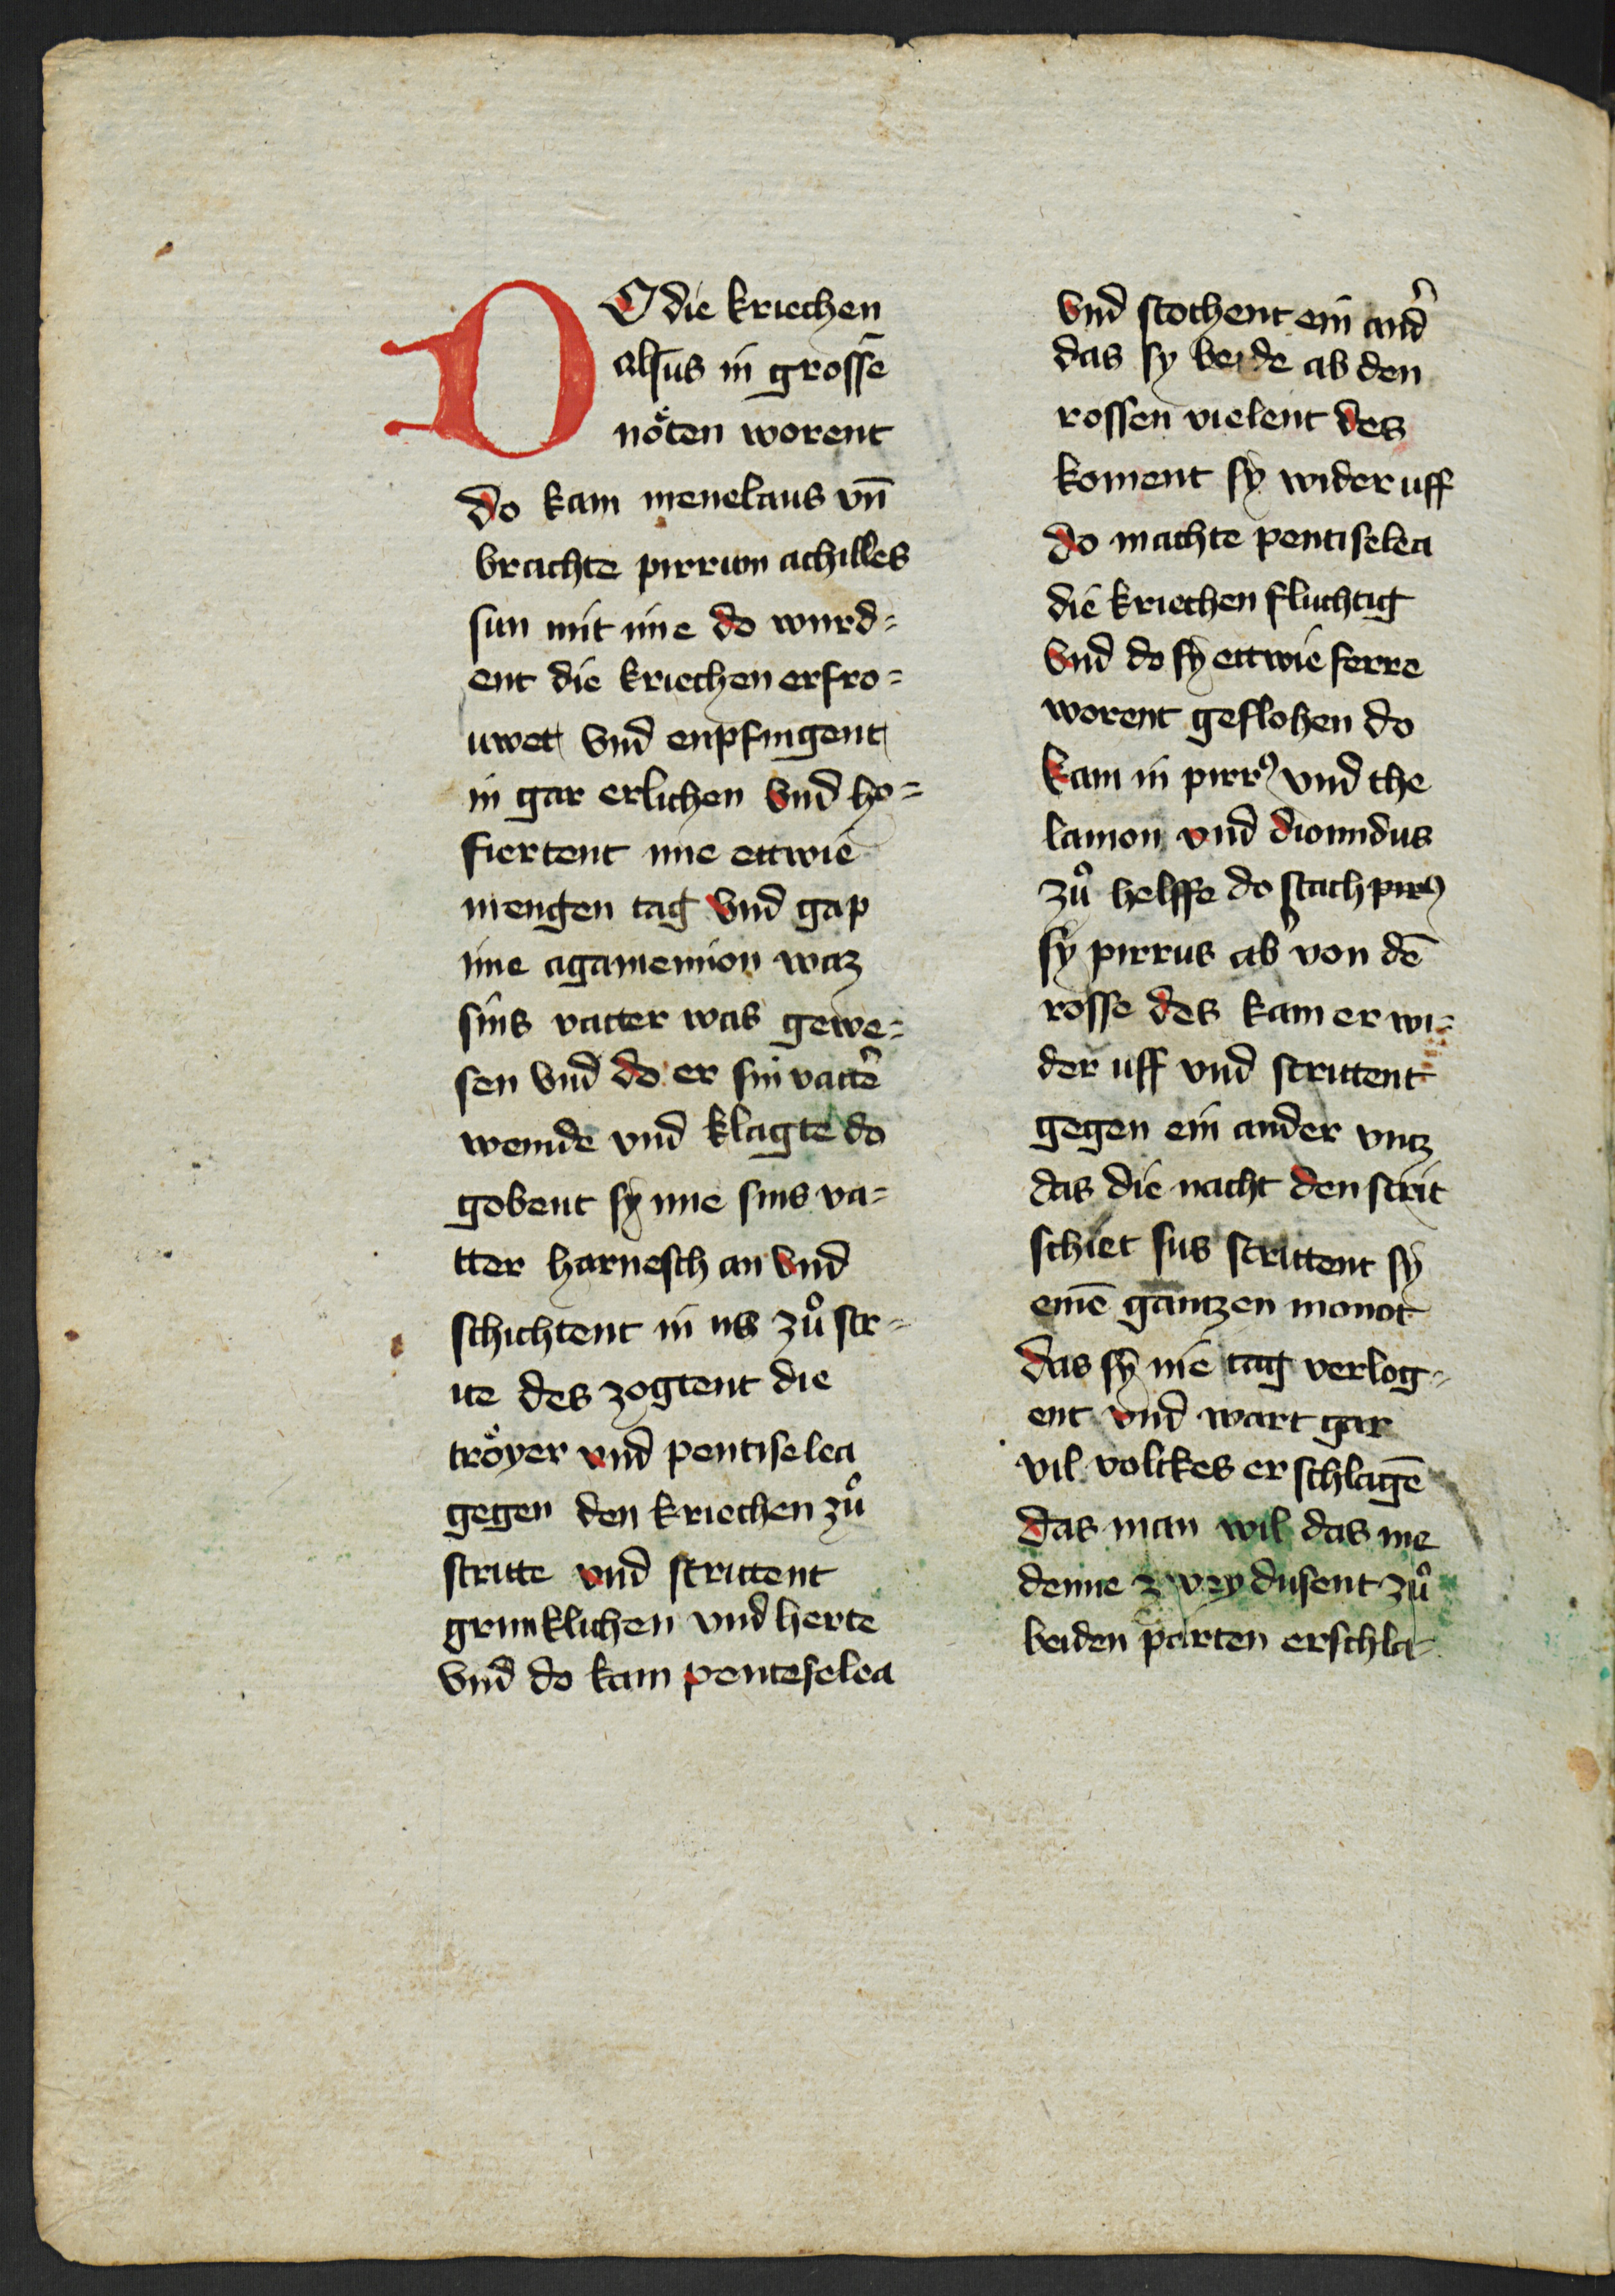 DO die kriechen
alsus in grosse̅
nöten worent
do kam menelaus vn̅
brachte pirrum achilles
sun mit ime do wurd=
ent die kriechen erfro=
uwet vnd enpfingent
in gar erlichen vnd ho=
fiertent ime ettwie
mengen tag vnd gap
ime agamemnon waz
sins vatter was gewe=
sen vnd do er sin vatt̾
weinde vnd klagte do
gobent sy ime sins va=
tter harnesch an vnd
schichtent in us zů str=
ite des zogtent die
tröyer vnd pentiselea
gegen den kriechen zů
stritte vnd strittent
grimklichen vnd herte
vnd do kam penteselea
vnd stochent ein and̾
das sy beide ab den
rossen vielent des
koment sy wider uff
do machte pentiselea
die kriechen fluchtig
vnd do sy ettwie ferre
worent geflohen do
kam in pirrꝰ vnd the
lamon vnd diomidus
zů helffe do stach pirꝰ
sy pirrus ab von de̅
rosse des kam er wi=
der uff vnd strittent
gegen ein ander vntz
das die nacht den strit
schiet sus strittent sy
eine̅ gantzen monot
das sy nie tag verlog=
ent vnd wart gar
vil volckes er schlage̅
das man wil das me
denne zwey dusent zů
beiden parten erschla=